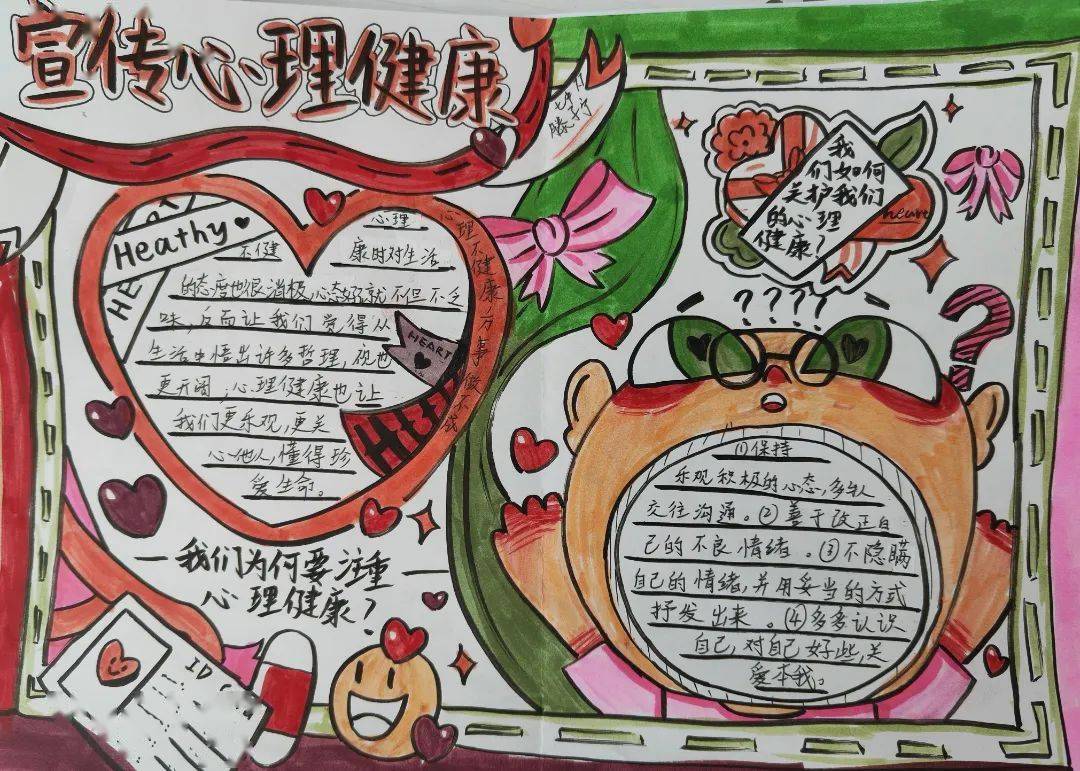 宣传心理健康
Heathy
心理
不健
康时对生活
的态度也很消极,心态好就不但不乏
味,反而让我们觉得从
生活中悟出许多哲理,视也
更开阔,心理健康也让
我们更乐观,更关
心他人,懂得珍
爱生命。
心理不健康万事做不成
HEART
我们为何要注重
心理健康?
ID
我
们如何
关护我们
的心理
健康?
heart
????
?
①保持
乐观积极的心态,多与人
交往沟通。②善于改正自
己的不良情绪。③不隐瞒
自己的情绪,并用妥当的方式
抒发出来。④多多认识
自己,对自己好些,关
爱本我。